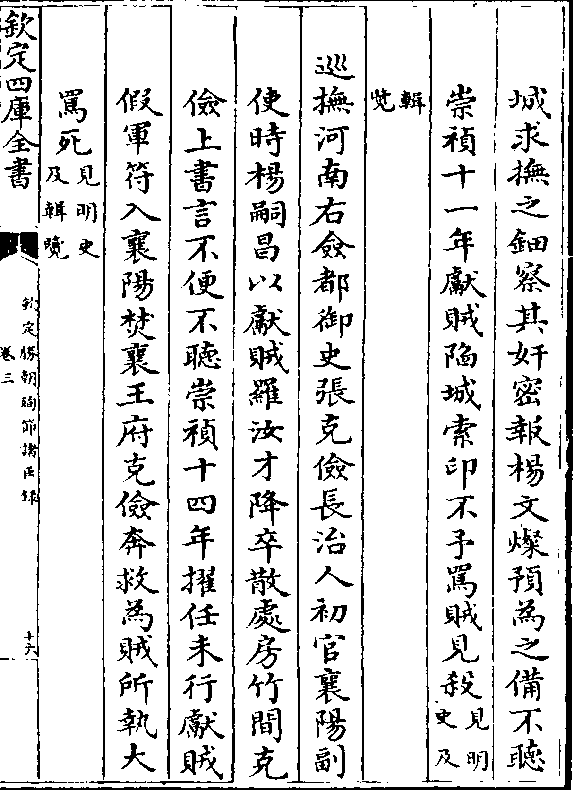 城求撫之鈿察其奸密報楊文燦預為之備不聽
崇禎十一年獻賊陷城索印不予罵賊見殺見明史及
輯覽
巡撫河南右僉都御史張克儉長治人初官襄陽副
使時楊嗣昌以獻賊羅汝才降卒散處房竹間克
儉上書言不便不聽崇禎十四年擢任未行獻賊
假軍符入襄陽焚襄王府克儉奔救為賊所執大
罵死見明史及輯覽
欽定四庫全書
欽定勝朝殉節諸臣錄
卷三
十六